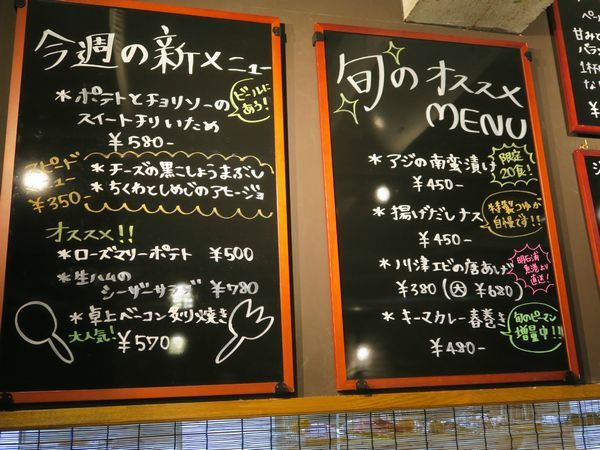 今週の新メニュー
*ポテトとチョリソーの
スイートチリいため
¥580-
ビールに
あう!
スピード
メニュー
¥350-
*チーズの黒こしょうまぶし
*ちくわとしめじのアヒージョ
オススメ!!
*ローズマリーポテト ¥500
*生ハムの
シーザーサラダ ¥780
*卓上ベーコン炙り焼き
大人気! ¥570
旬のオススメ
MENU
*アジの南蛮漬け
¥450-
限定
20食!
*揚げだしナス
¥450-
特製つゆが
自慢です!!
*川津エビの唐あげ
¥380(大 ¥680)
明石浦
漁港より
直送!
*キーマカレー春巻き
¥480-
旬のピーマン
増量中!!
甘みと